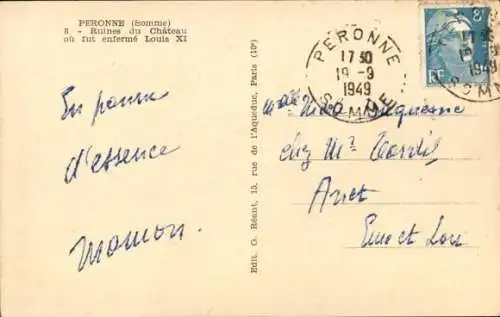 PERONNE (Somme)
8 - Ruines du Château
où fut enfermé Louis XI
En panne
d'essence
Maman.
Edit. G. Réant, 13, rue de l'Aqueduc, Paris (10e)
PERONNE
17 30
19-9
1949
SOMME
8F
RF
17 30
19-9
1949
SOMME
Duquesne
chez Mr
Anet
Eure et Loir